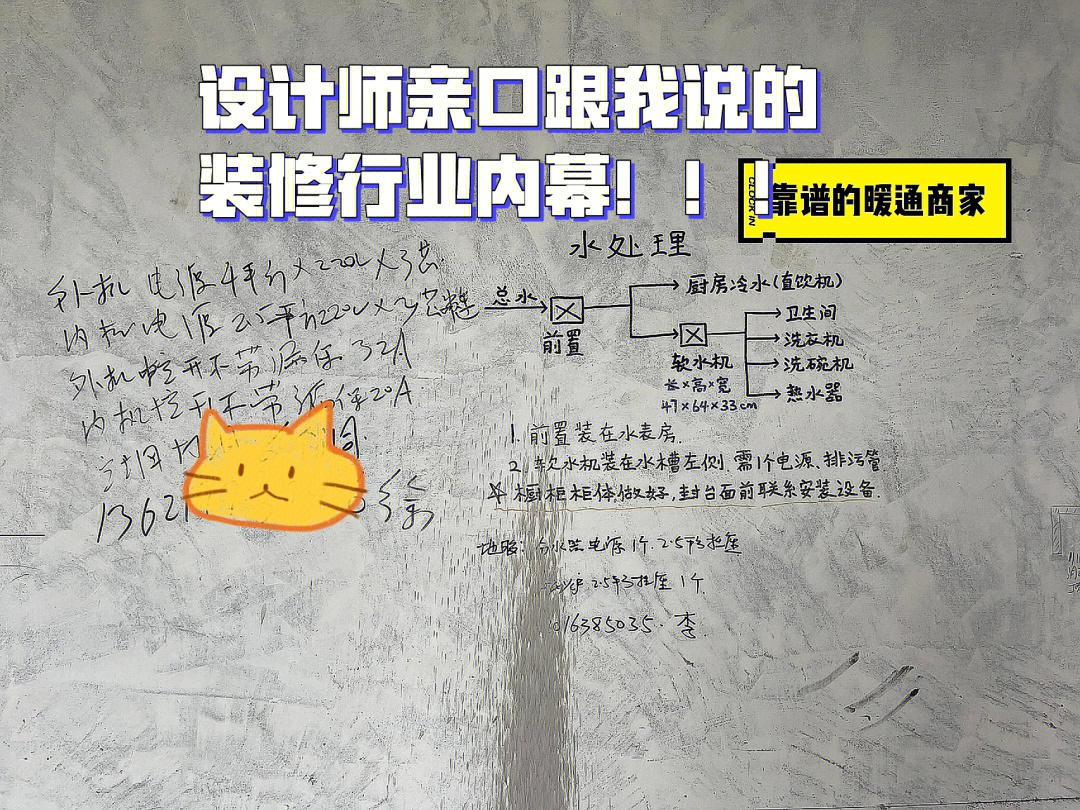 设计师亲口跟我说的
装修行业内幕！！！
CLOCK IN
靠谱的暖通商家
水处理
外机电源4平方×220V×3芯
内机电源2.5平方220V×3芯
外机空开不带漏保32A
内机空开不带漏保20A
1362
徐
总水
前置
厨房冷水(直饮机)
软水机
长×高×宽
47×64×33cm
卫生间
洗衣机
洗碗机
热水器
1. 前置装在水表房.
2. 软水机装在水槽左侧.需1个电源、排污管
☆橱柜柜体做好,封台面前联系安装设备.
地暖: 分水器电源1个.2.5平方插座
2.5平方插座1个.
016385035.李.